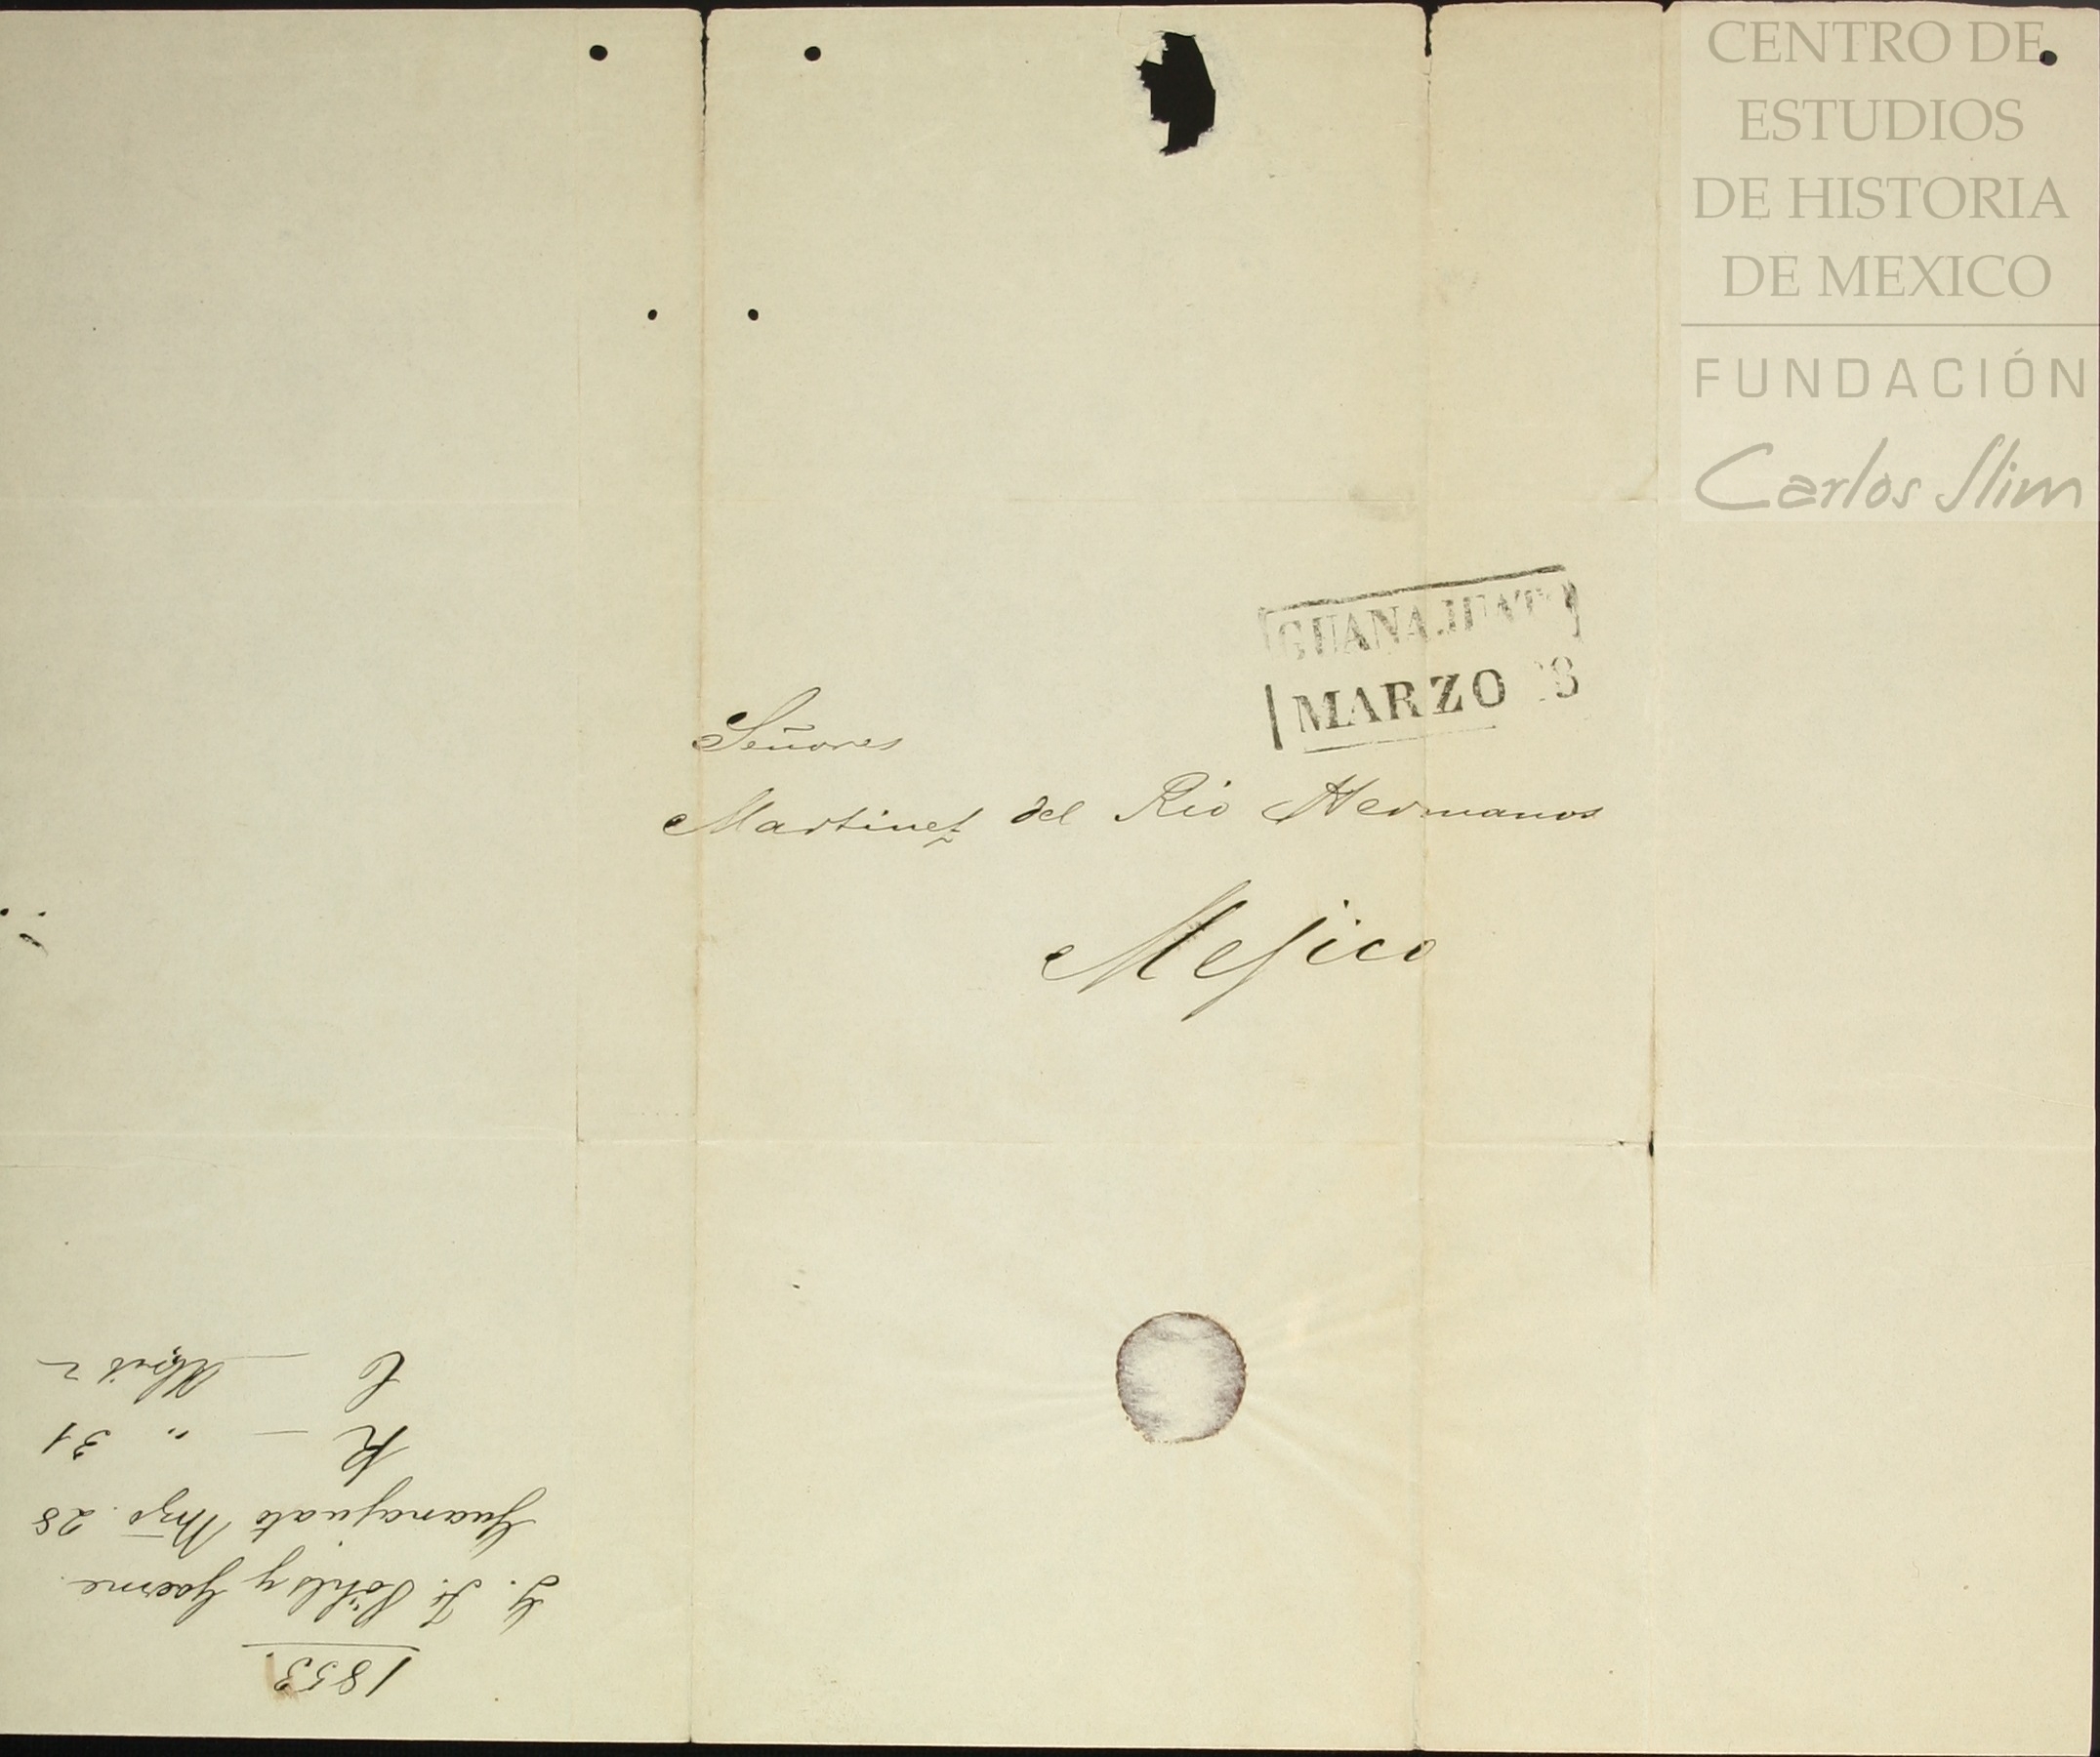 CENTRO DE
ESTUDIOS
DE HISTORIA
DE MEXICO
FUNDACIÓN
Carlos Slim
GUANAJUATO
MARZO 28
Señores
Martinez del Rio Hermanos
Mejico
1853.
Guanajuato Mzo. 28
R — " 31
C — Abril 2